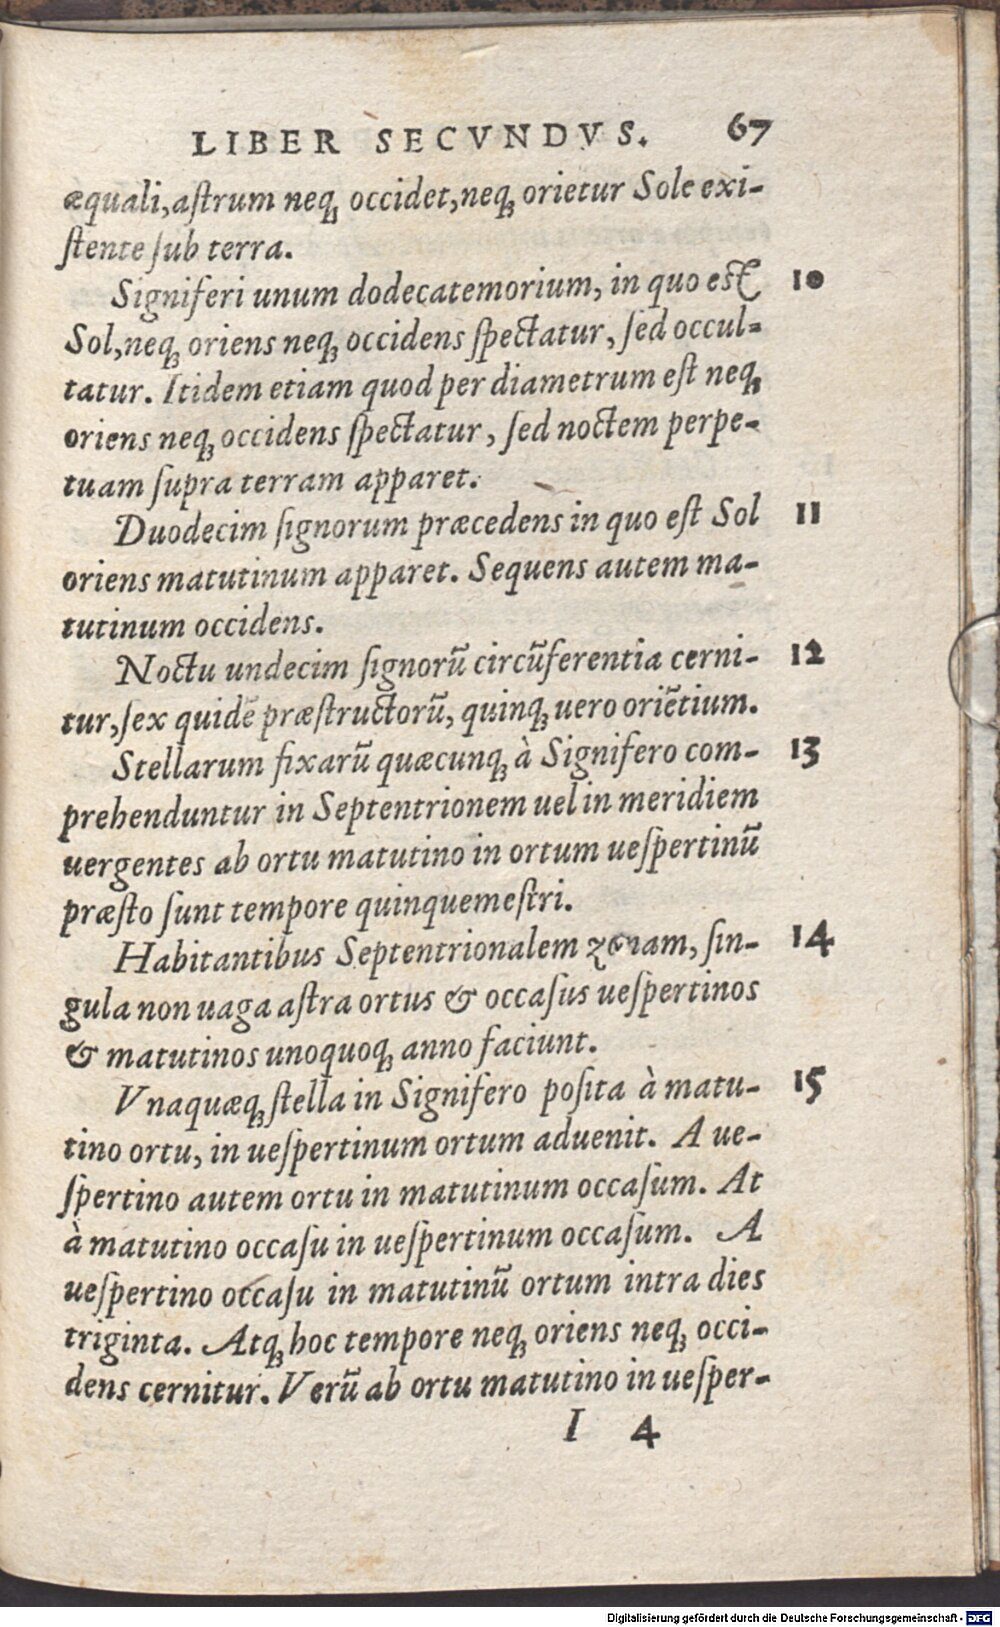 LIBER SECVNDVS. 67
æquali, astrum neq; occidet, neq; orietur Sole exi-
stente sub terra.
Signiferi unum dodecatemorium, in quo est 10
Sol, neq; oriens neq; occidens spectatur, sed occul-
tatur. Itidem etiam quod per diametrum est neq;
oriens neq; occidens spectatur, sed noctem perpe-
tuam supra terram apparet.
Duodecim signorum præcedens in quo est Sol 11
oriens matutinum apparet. Sequens autem ma-
tutinum occidens.
Noctu undecim signorũ circũferentia cerni- 12
tur, sex quidẽ præstructorũ, quinq; uero oriẽtium.
Stellarum fixarũ quæcunq; à Signifero com- 13
prehenduntur in Septentrionem uel in meridiem
uergentes ab ortu matutino in ortum uespertinũ
præsto sunt tempore quinquemestri.
Habitantibus Septentrionalem zonam, sin- 14
gula non uaga astra ortus & occasus uespertinos
& matutinos unoquoq; anno faciunt.
Vnaquæq; stella in Signifero posita à matu- 15
tino ortu, in uespertinum ortum aduenit. A ue-
spertino autem ortu in matutinum occasum. At
à matutino occasu in uespertinum occasum. A
uespertino occasu in matutinũ ortum intra dies
triginta. Atq; hoc tempore neq; oriens neq; occi-
dens cernitur. Verũ ab ortu matutino in uesper-
I 4
Digitalisierung gefördert durch die Deutsche Forschungsgemeinschaft - DFG